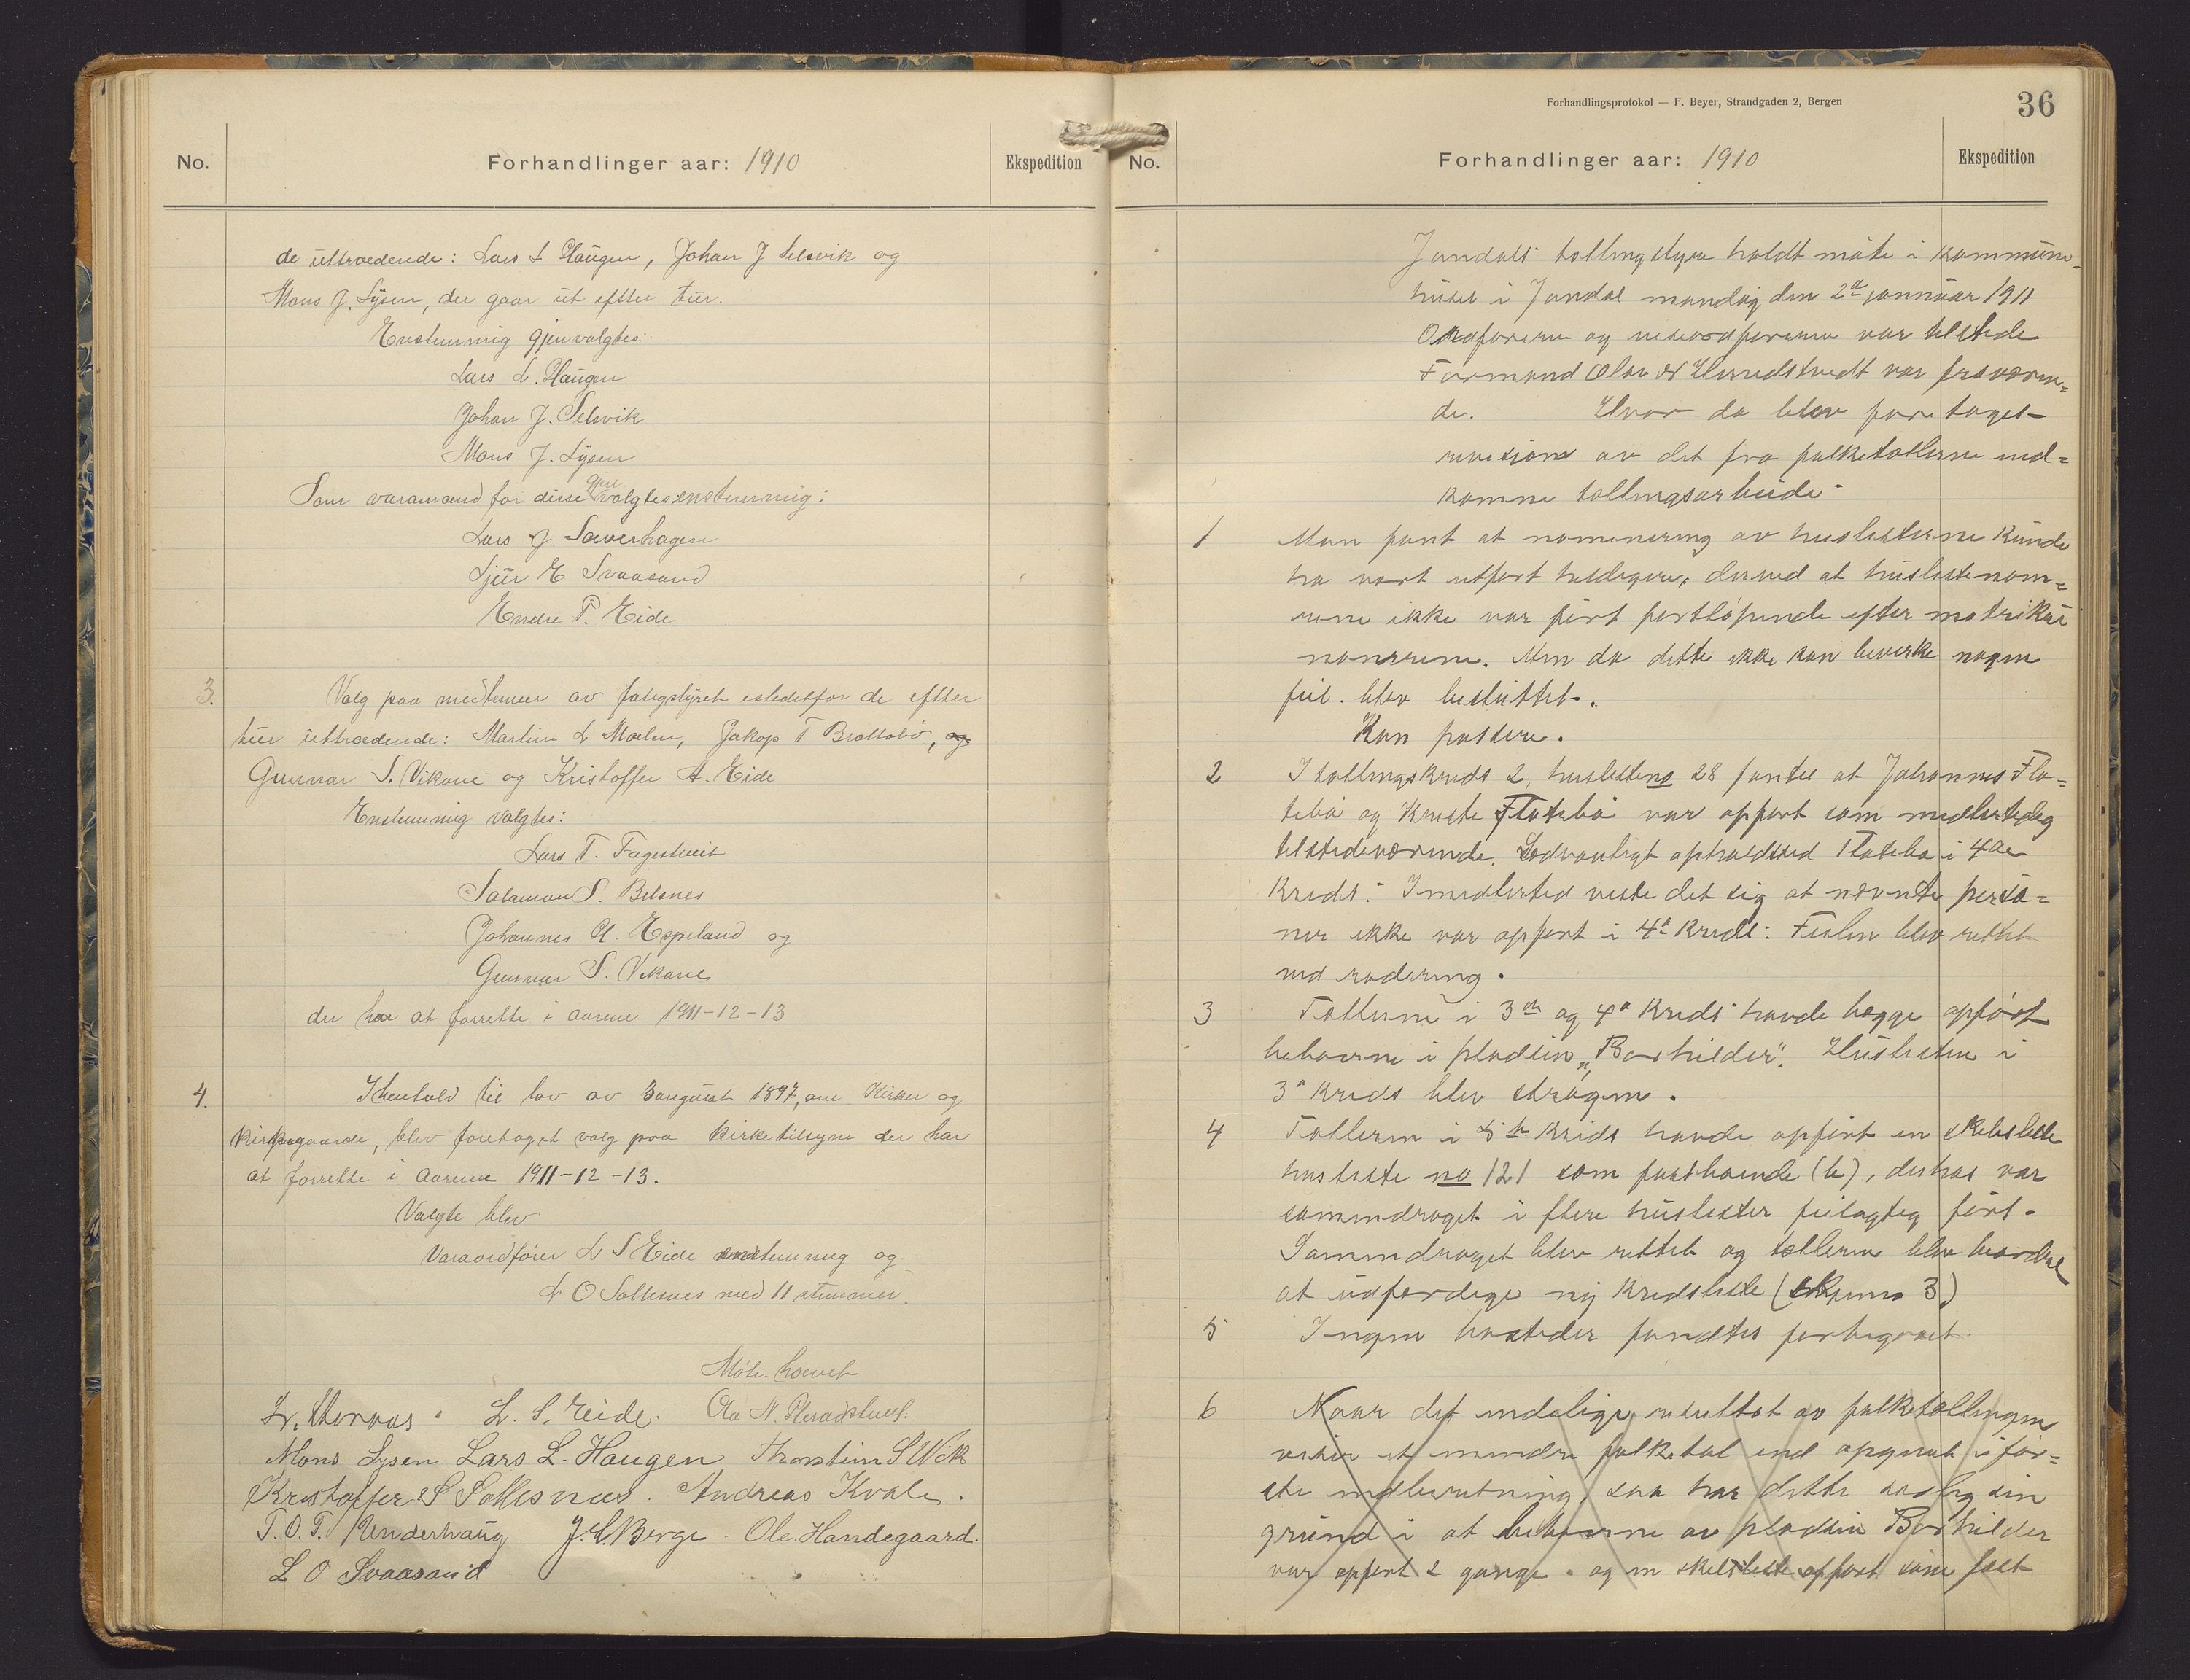 No.
Forhandlinger aar: 1910
Ekspedition
de uttrædende: Lars L Haugen, Johan J Selsvik og
Mons J. Lysen, der gaar ut efter tur.
Enstemmig gjenvalgtes:
Lars L. Haugen
Johan J. Selsvik
Mons J. Lysen
Som varamænd for disse gjen valgtes enstemmig:
Lars J. Sæverhagen
Sjur E Svaasand
Endre T. Eide
3.
Valg paa medlemer av fatigstyret istedetfor de efter
tur uttrædende: Martin L Mælen, Jakop T Brattabø, og
Gunnar S. Vikane og Kristoffer A. Eide
Enstemmig valgtes:
Lars T. Fagertveit
Salamon S. Belsnes
Johannes H. Espeland og
Gunnar S. Vikane
der har at forrette i aarene 1911-12-13
4.
I henhold til lov av 3 august 1897, om Kirker og
kirkegaarde, blev foretaget valg paa kirketilsyn der har
at forrette i aarene 1911-12-13.
Valgte blev
Varaordfører L S Eide enstemmig og
L O Solesnes med 11 stemmer.
Møte hævet
L. S. Eide. Ola N. Heradstveit.
Mons Lysen Lars L. Haugen Thorstein S Vik
Kristoffer S Solesnes. Andreas Kvale.
T. O. T. Underhaug. J. L. Berge. Ole Handegaard.
L O Svaasand
Forhandlingsprotokol — F. Beyer, Strandgaden 2, Bergen
36
No.
Forhandlinger aar: 1910
Ekspedition
Jondals tellingstyre holdt møte i kommune-
huset i Jondal mandag den 2den januar 1911
Ordføreren og viseordføreren var tilstede
Formand Olav N Herredstvedt var fraværen=
de. Hvor da blev foretaget
revision av det fra folketællerne ind=
komne tællingsarbeide
1
Man fant at nomenering av huslisterne kunde
ha vært utført heldigere, derved at huslistenom=
rene ikke var ført fortløpende efter matrikul
nomrene. Men da dette ikke kan bevirke nogen
feil. blev besluttet.
Kan passere.
2
I tællingskreds 2, husliste no 28 fantes at Johannes Flo=
tebø og Kriste Flotebø var opført som midlertidig
tilstedeværende. Sedvanligt opholdssted Flatebø i 4de
Kreds. Imidlertid viste det sig at nævnte perso=
ner ikke var opført i 4de Kreds. Feilen blev rettet
ved radering.
3
Tællerne i 3die og 4de Kreds havde begge opført
beboerne i pladsen "Borhilder". Huslisten i
3die Kreds blev strøgen.
4
Tælleren i 5te Kreds havde opført en skolestile
husliste no 121 som fastboende (b), deshos var
sammendraget i flere huslister feilagtig ført.
Sammendraget blev rettet og tælleren blev beordret
at udferdige ny kredsliste (skjema 3)
5
Ingen bosteder fandtes forbigaaet.
6
Naar det endelige resultat av folketællingen
viser et mindre folketal end opgivet i før=
ste indberetning, saa har dette særlig sin
grund i at beboerne av pladsen Borhilder
var opført 2 gange. og en opført som fast